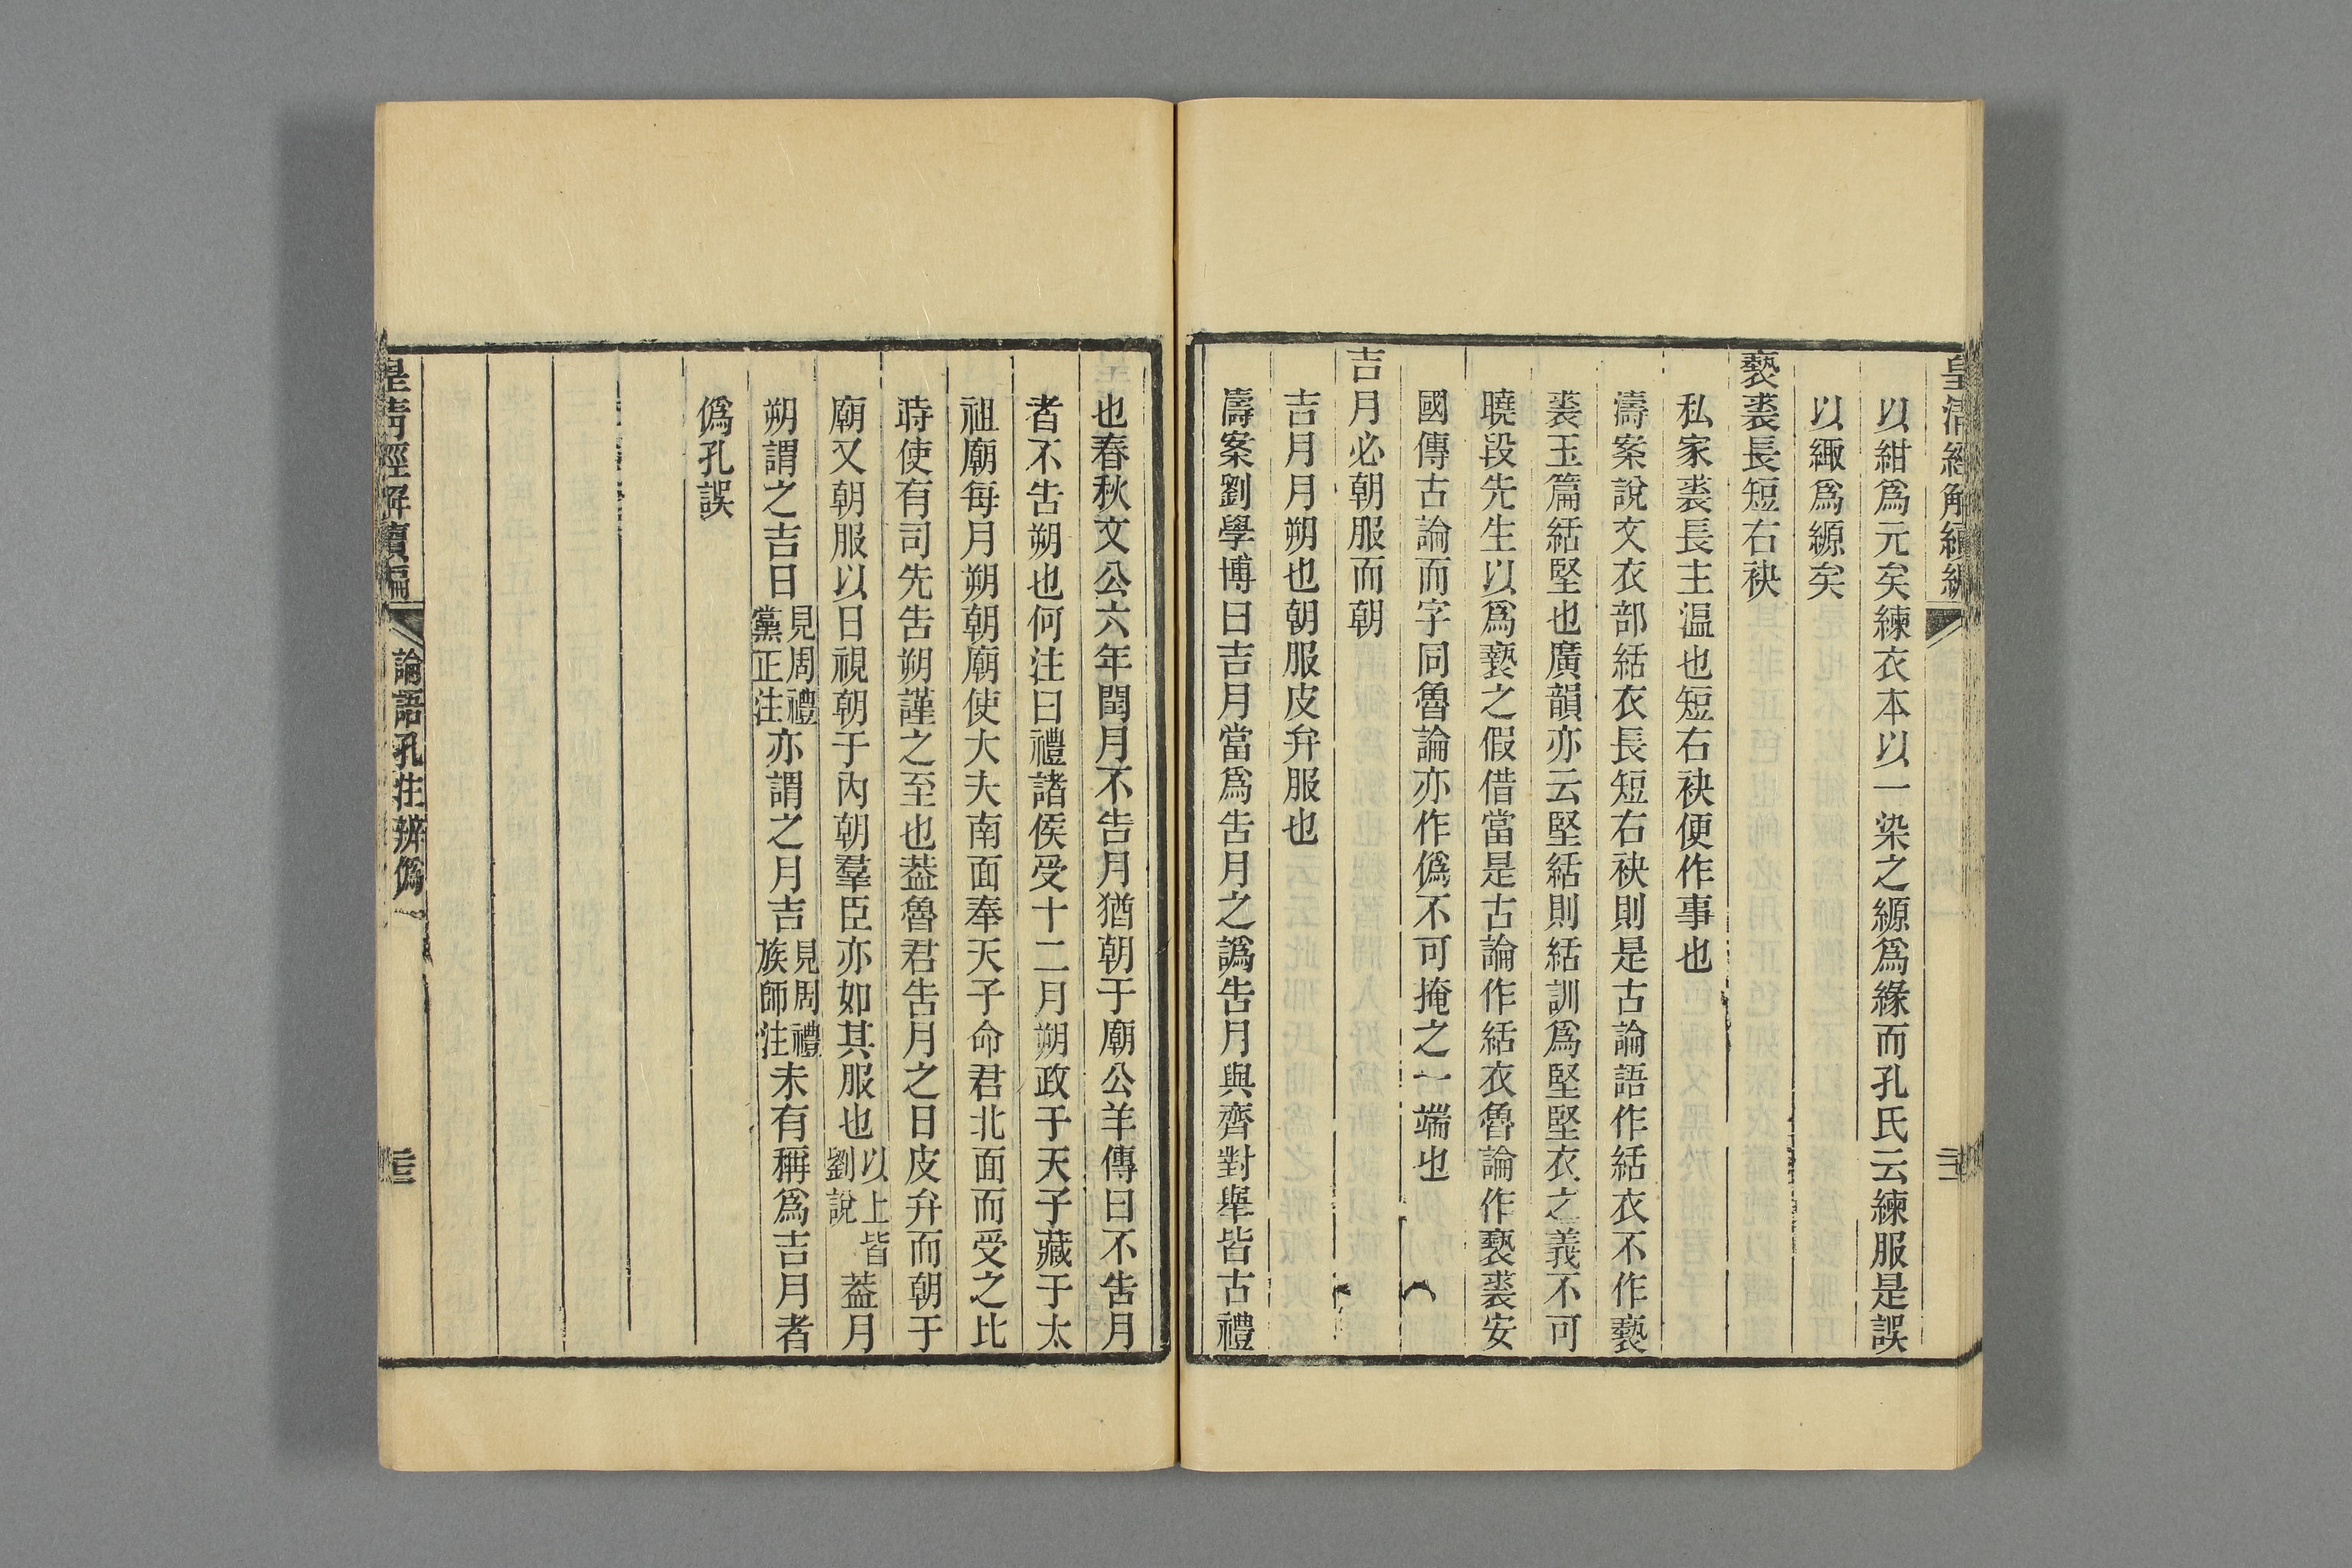 皇清經解續編
以紺爲元矣練衣本以一染之縓爲緣而孔氏云練服是誤
以緅爲縓矣
褻裘長短右袂
私家裘長主温也短右袂便作事也
濤案說文衣部䘸衣長短右袂則是古論語作䘸衣不作褻
裘玉篇䘸堅也廣韻亦云堅䘸則䘸訓爲堅堅衣之義不可
曉段先生以爲褻之假借當是古論作䘸衣魯論作褻裘安
國傳古論而字同魯論亦作僞不可掩之一端也
吉月必朝服而朝
吉月月朔也朝服皮弁服也
濤案劉學博曰吉月當爲告月之譌告月與齊對舉皆古禮
也春秋文公六年閏月不告月猶朝于廟公羊傳曰不告月
者不告朔也何注曰禮諸侯受十二月朔政于天子藏于太
祖廟每月朔朝廟使大夫南面奉天子命君北面而受之比
時使有司先告朔謹之至也葢魯君告月之日皮弁而朝于
廟又朝服以日視朝于內朝羣臣亦如其服也以上皆劉說葢月
朔謂之吉日見周禮黨正注亦謂之月吉見周禮族師注未有稱爲吉月者
僞孔誤
皇清經解續編
論語孔注辨僞一